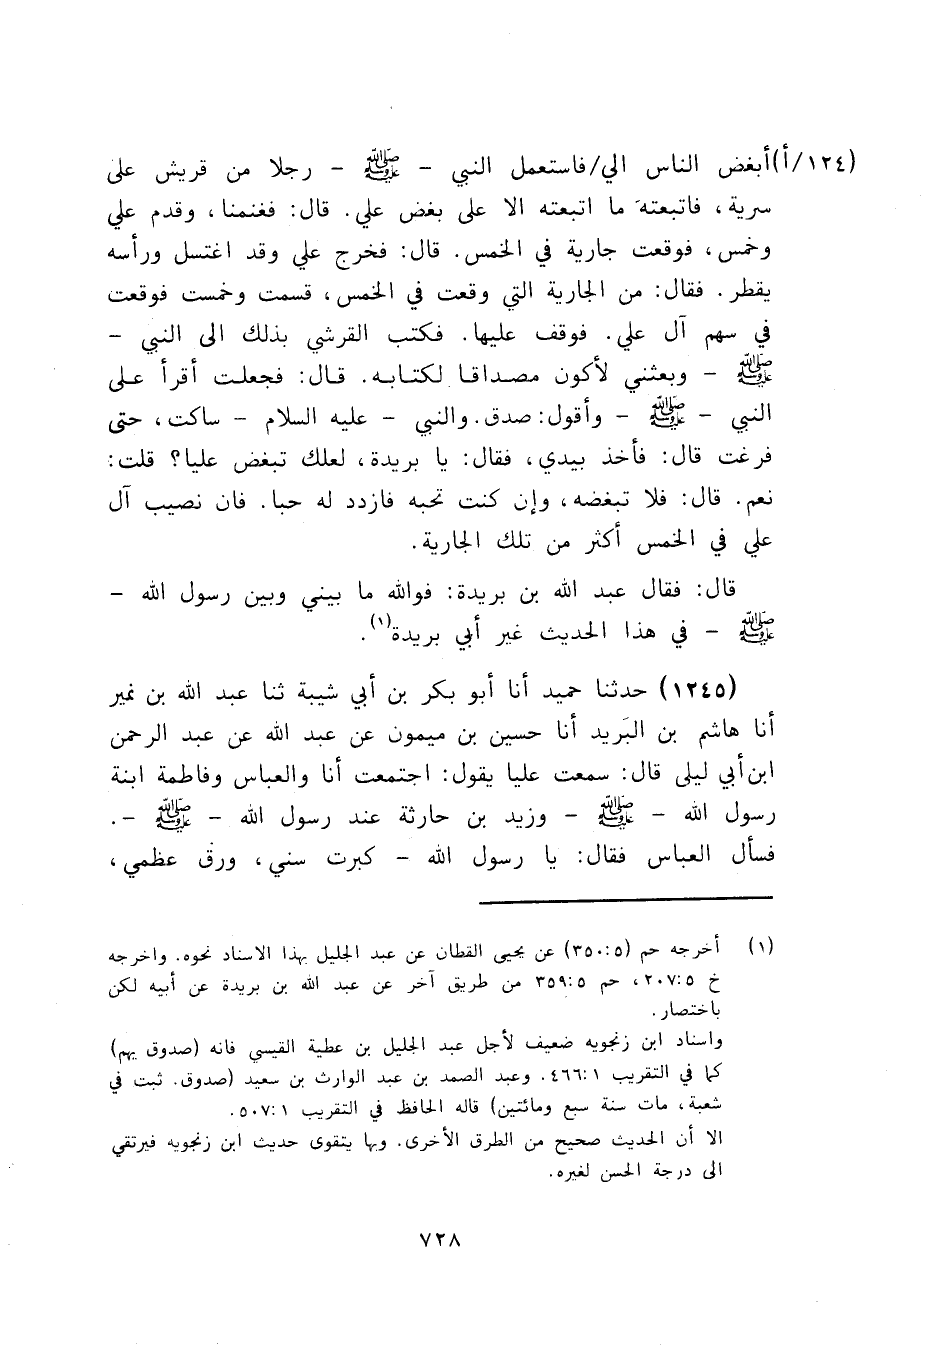 (١٢٤/أ)أبغض الناس الي/فاستعمل النبي - ﷺ - رجلا من قريش على
سرية، فاتبعته ما اتبعته الا على بغض علي. قال: فغنمنا، وقدم علي
وخمس، فوقعت جارية في الخمس. قال: فخرج علي وقد اغتسل ورأسه
يقطر. فقال: من الجارية التي وقعت في الخمس، قسمت وخمست فوقعت
في سهم آل علي. فوقف عليها. فكتب القرشي بذلك الى النبي -
ﷺ - وبعثني لأكون مصداقا لكتابه. قال: فجعلت أقرأ على
النبي - ﷺ - وأقول: صدق. والنبي - عليه السلام - ساكت، حتى
فرغت قال: فأخذ بيدي، فقال: يا بريدة، لعلك تبغض عليا؟ قلت:
نعم. قال: فلا تبغضه، وإن كنت تحبه فازدد له حبا. فان نصيب آل
علي في الخمس أكثر من تلك الجارية.
قال: فقال عبد الله بن بريدة: فوالله ما بيني وبين رسول الله -
ﷺ - في هذا الحديث غير أبي بريدة(١).
(١٢٤٥) حدثنا حميد أنا أبو بكر بن أبي شيبة ثنا عبد الله بن نمير
أنا هاشم بن البَريد أنا حسين بن ميمون عن عبد الله عن عبد الرحمن
ابن أبي ليلى قال: سمعت عليا يقول: اجتمعت أنا والعباس وفاطمة ابنة
رسول الله - ﷺ - وزيد بن حارثة عند رسول الله - ﷺ -.
فسأل العباس فقال: يا رسول الله - كبرت سني، ورق عظمي،
(١) أخرجه حم (٣٥٠:٥) عن يحيى القطان عن عبد الجليل بهذا الاسناد نحوه. واخرجه
خ ٢٠٧:٥، حم ٣٥٩:٥ من طريق آخر عن عبد الله بن بريدة عن أبيه لكن
باختصار.
واسناد ابن زنجويه ضعيف لأجل عبد الجليل بن عطية القيسي فانه (صدوق يهم)
كما في التقريب ٤٦٦:١. وعبد الصمد بن عبد الوارث بن سعيد (صدوق. ثبت في
شعبة، مات سنة سبع ومائتين) قاله الحافظ في التقريب ٥٠٧:١.
الا أن الحديث صحيح من الطرق الأخرى. وبها يتقوى حديث ابن زنجويه فيرتقي
الى درجة الحسن لغيره.
٧٢٨